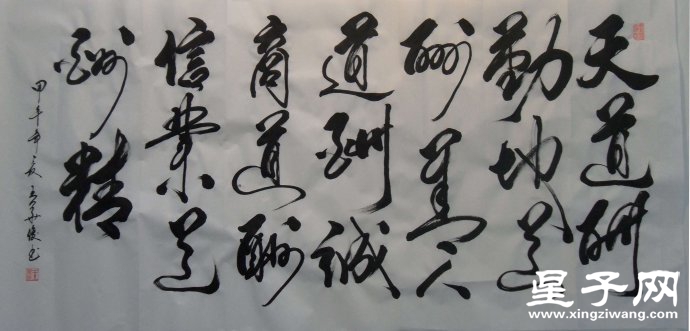 天道酬
勤地道
酬善人
道酬誠
商道酬
信業道
酬精
甲午年夏
星子网
www.xingziwang.com